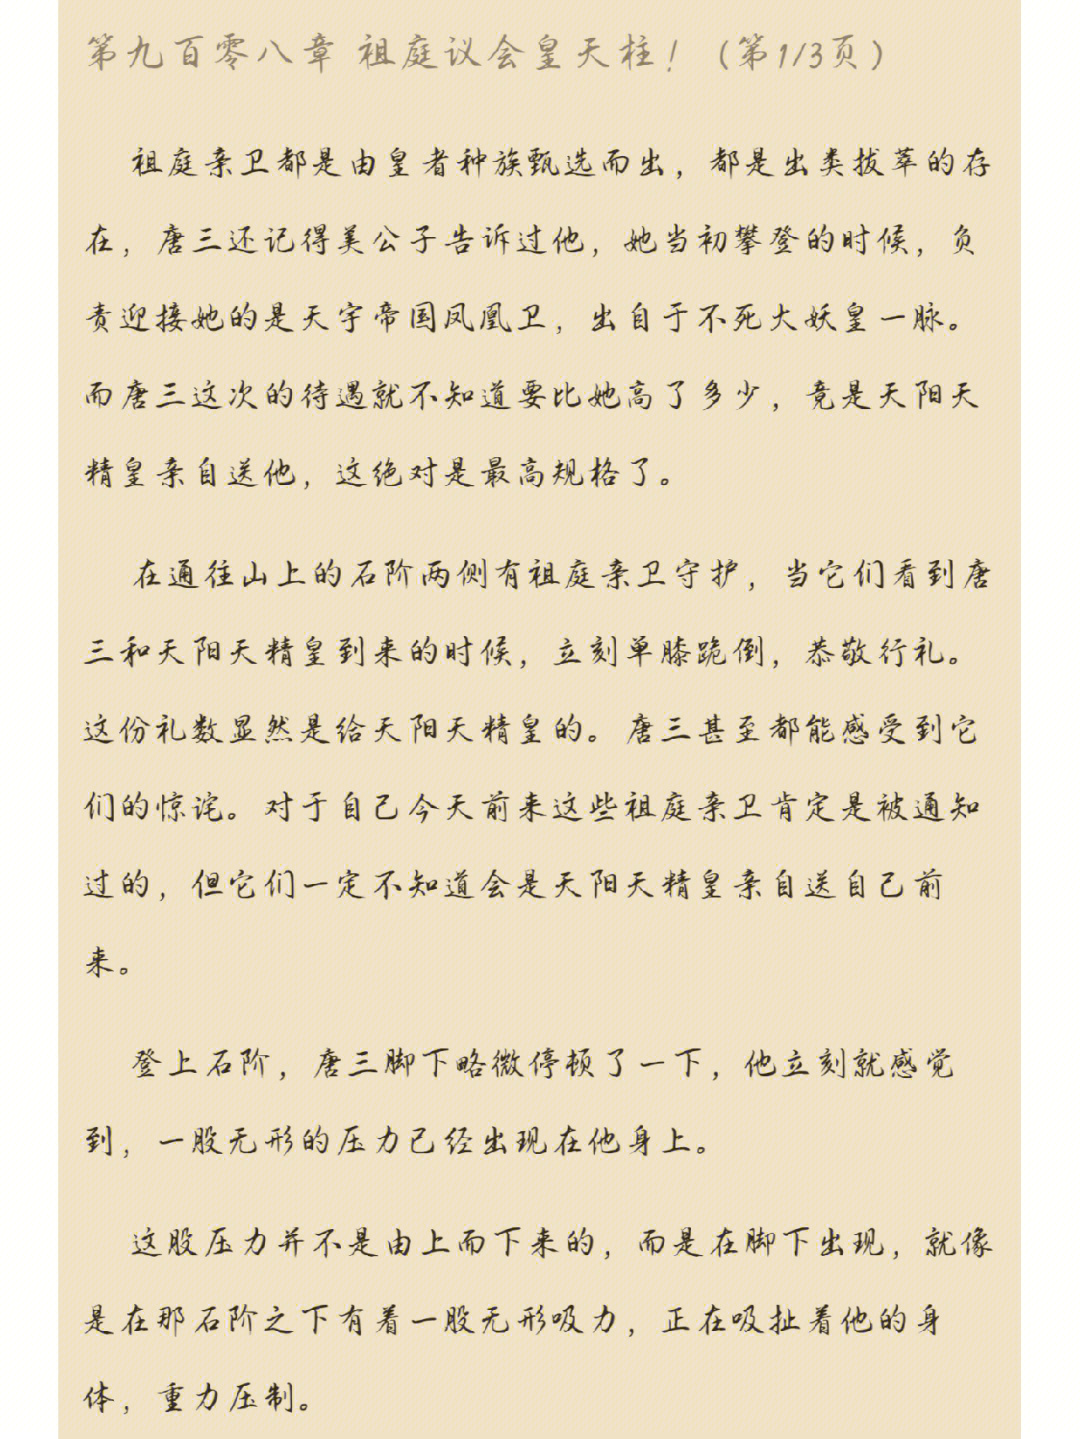 第九百零八章 祖庭议会皇天柱！（第1/3页）
祖庭亲卫都是由皇者种族甄选而出，都是出类拔萃的存
在，唐三还记得美公子告诉过他，她当初攀登的时候，负
责迎接她的是天宇帝国凤凰卫，出自于不死大妖皇一脉。
而唐三这次的待遇就不知道要比她高了多少，竟是天阳天
精皇亲自送他，这绝对是最高规格了。
在通往山上的石阶两侧有祖庭亲卫守护，当它们看到唐
三和天阳天精皇到来的时候，立刻单膝跪倒，恭敬行礼。
这份礼数显然是给天阳天精皇的。唐三甚至都能感受到它
们的惊诧。对于自己今天前来这些祖庭亲卫肯定是被通知
过的，但它们一定不知道会是天阳天精皇亲自送自己前
来。
登上石阶，唐三脚下略微停顿了一下，他立刻就感觉
到，一股无形的压力已经出现在他身上。
这股压力并不是由上而下来的，而是在脚下出现，就像
是在那石阶之下有着一股无形吸力，正在吸扯着他的身
体，重力压制。